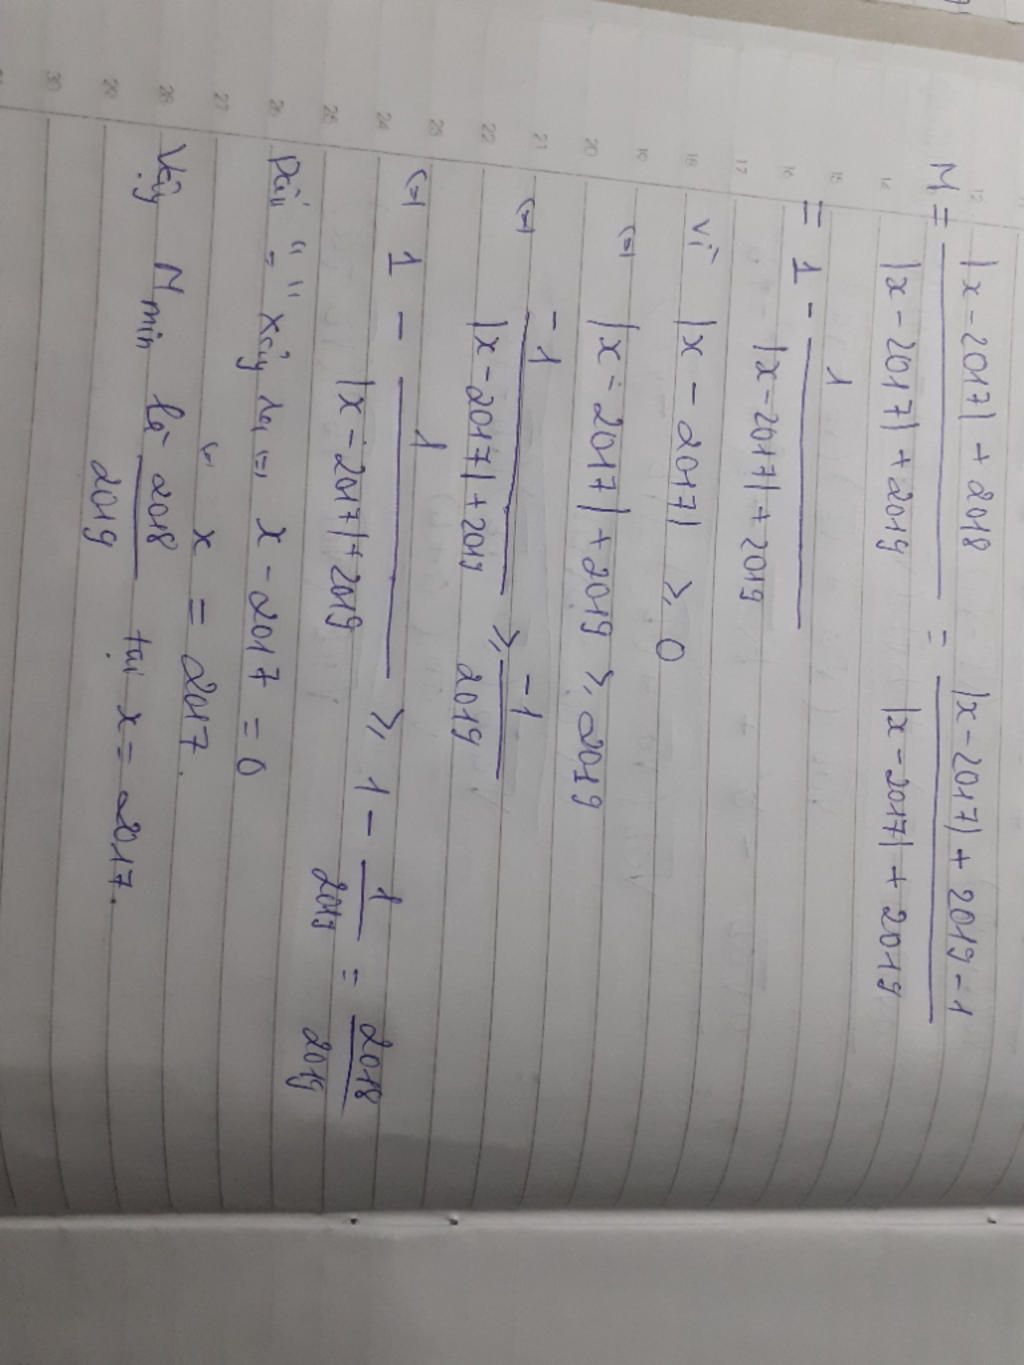 M = |x - 2017| + 2018 / |x - 2017| + 2019 = |x - 2017| + 2019 - 1 / |x - 2017| + 2019
= 1 - 1 / |x - 2017| + 2019
Vì |x - 2017| ≥ 0
(=) |x - 2017| + 2019 ≥ 2019
(=) -1 / |x - 2017| + 2019 ≥ -1 / 2019
(=) 1 - 1 / |x - 2017| + 2019 ≥ 1 - 1 / 2019 = 2018 / 2019
Dấu "=" xảy ra (=) x - 2017 = 0
x = 2017.
Vậy M min là 2018 / 2019 tại x = 2017.